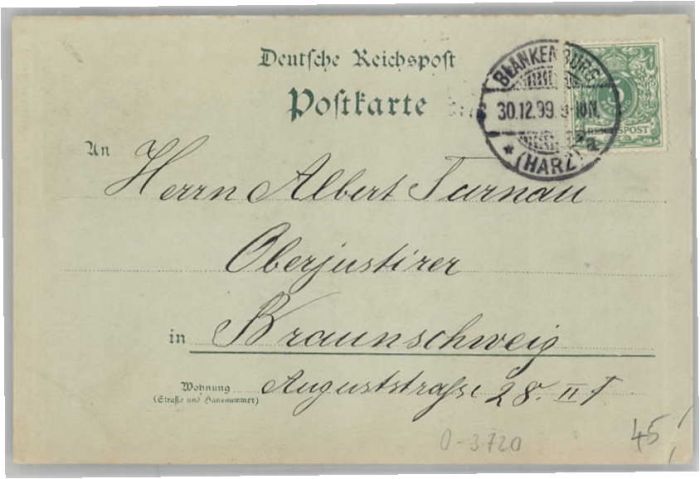 Deutsche Reichspost
Postkarte
BLANKENBURG
30.12.99. 9-10N.
* (HARZ) a
REICHSPOST
An
Herrn Albert Turnau
Oberjustirer
in Braunschweig
Wohnung
(Straße und Hausnummer)
Auguststraße 28. II
0-3720
45